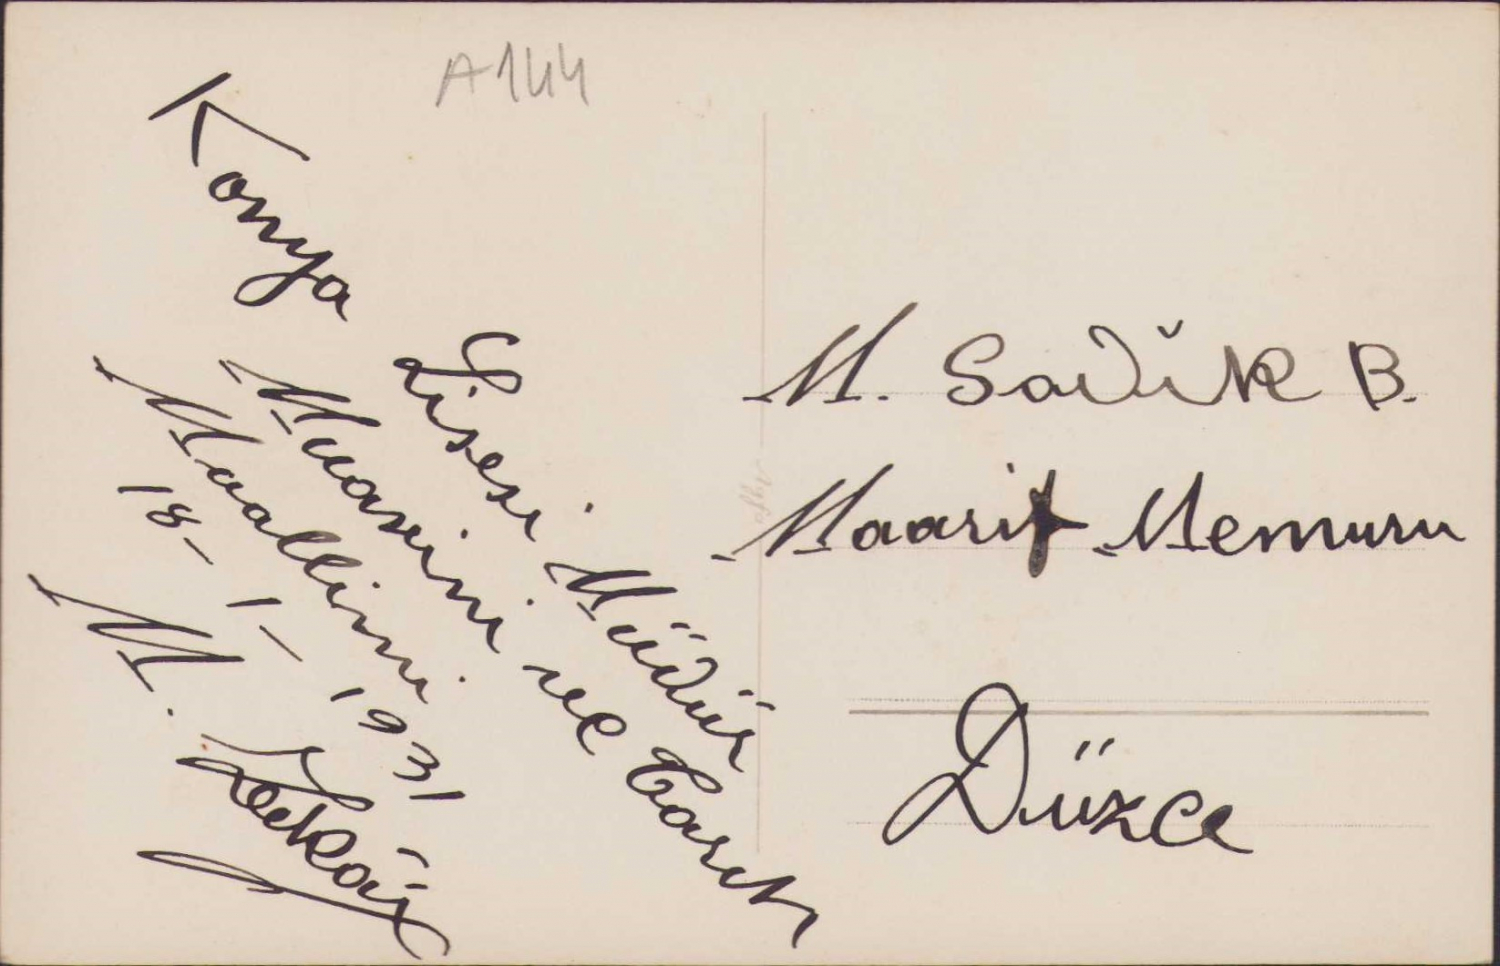 A144
Konya Lisesi Müdür
Muavini ve Tarih
Muallimi
18-1-1931
M. Zekâi
M. Sadık B.
Maarif Memuru
Düzce